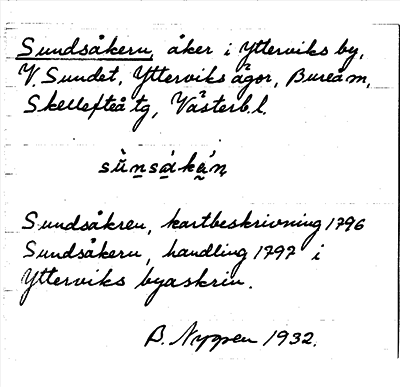 Sundsåkern, åker i Ytterviks by,
V. Sundet, Ytterviks ägor, Bureå sn,
Skellefteå tg, Västerb. l.
Sundsåkren, kartbeskrivning 1796
Sundsåkern, handling 1797 i
Ytterviks byaskrin.
B. Nygren 1932.